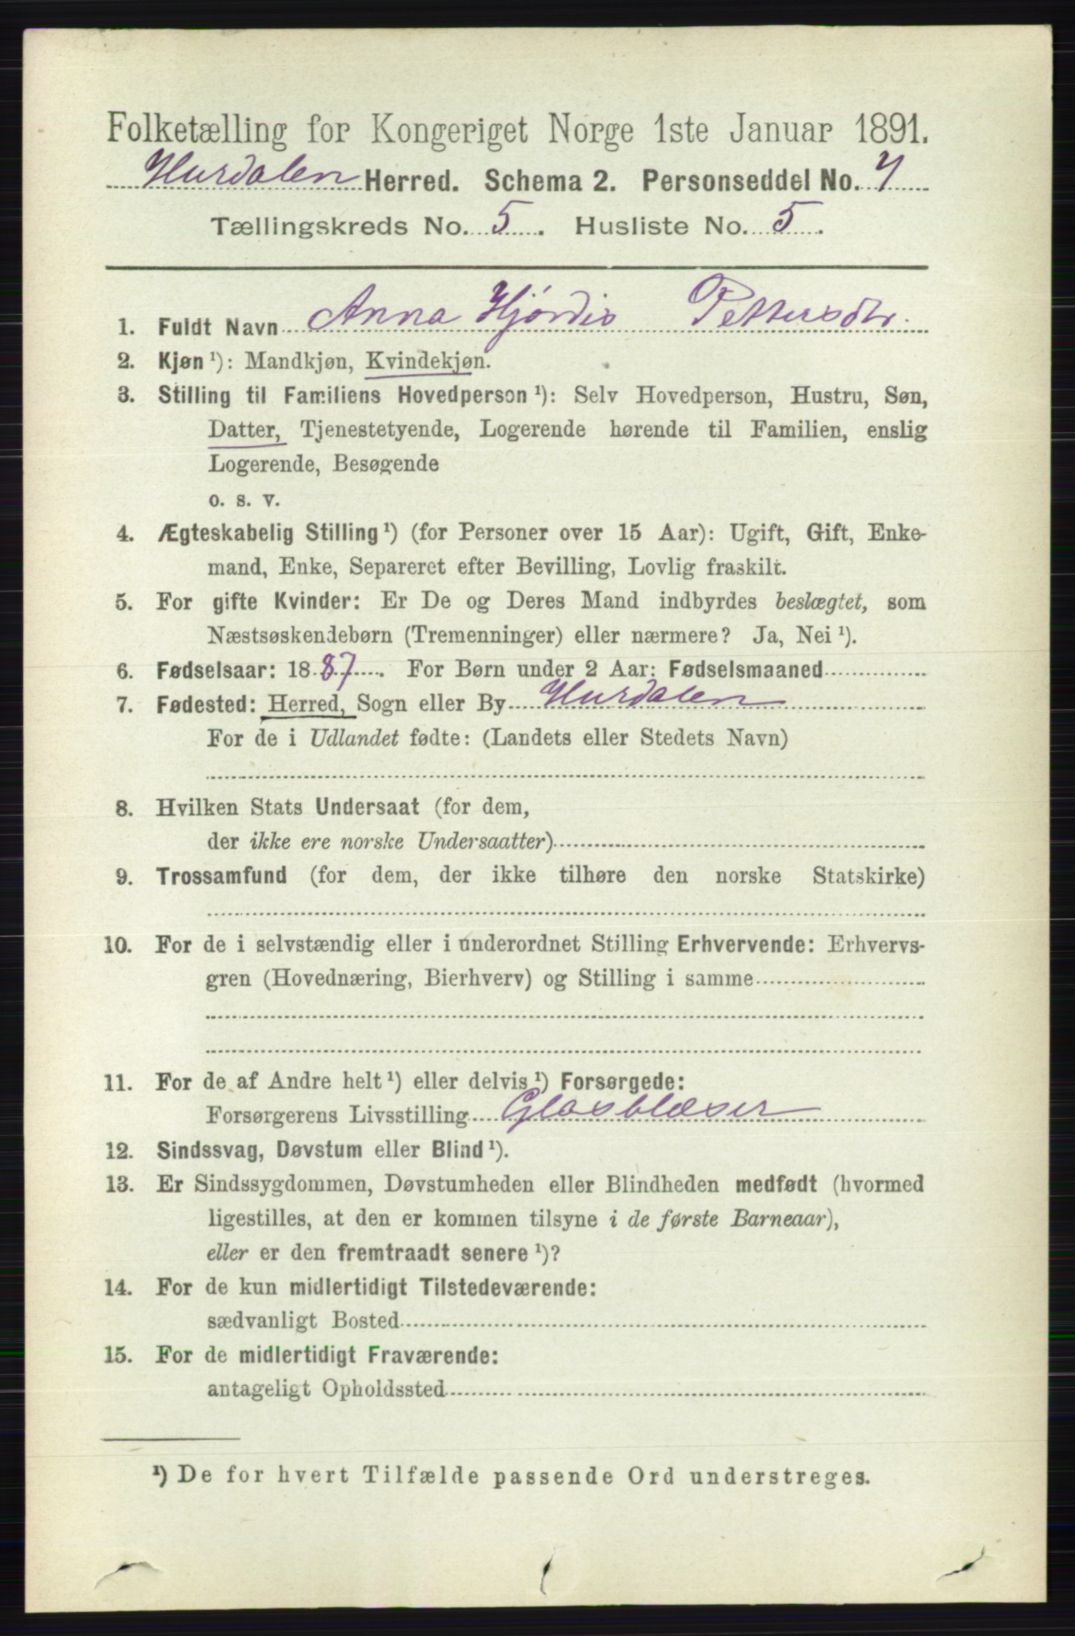 Folketælling for Kongeriget Norge 1ste Januar 1891.
Hurdalen Herred. Schema 2. Personseddel No. 7
Tællingskreds No. 5. Husliste No. 5.
1. Fuldt Navn Anna Hjørdis Pettersdtr.
2. Kjøn ¹): Mandkjøn, Kvindekjøn.
3. Stilling til Familiens Hovedperson ¹): Selv Hovedperson, Hustru, Søn,
Datter, Tjenestetyende, Logerende hørende til Familien, enslig
Logerende, Besøgende
o. s. v.
4. Ægteskabelig Stilling ¹) (for Personer over 15 Aar): Ugift, Gift, Enke-
mand, Enke, Separeret efter Bevilling, Lovlig fraskilt.
5. For gifte Kvinder: Er De og Deres Mand indbyrdes beslægtet, som
Næstsøskendebørn (Tremenninger) eller nærmere? Ja, Nei ¹).
6. Fødselsaar: 1887. For Børn under 2 Aar: Fødselsmaaned
7. Fødested: Herred, Sogn eller By Hurdalen
For de i Udlandet fødte: (Landets eller Stedets Navn)
8. Hvilken Stats Undersaat (for dem,
der ikke ere norske Undersaatter)
9. Trossamfund (for dem, der ikke tilhøre den norske Statskirke)
10. For de i selvstændig eller i underordnet Stilling Erhvervende: Erhvervs-
gren (Hovednæring, Bierhverv) og Stilling i samme
11. For de af Andre helt ¹) eller delvis ¹) Forsørgede:
Forsørgerens Livsstilling Glasblæser
12. Sindssvag, Døvstum eller Blind ¹).
13. Er Sindssygdommen, Døvstumheden eller Blindheden medfødt (hvormed
ligestilles, at den er kommen tilsyne i de første Barneaar),
eller er den fremtraadt senere ¹)?
14. For de kun midlertidigt Tilstedeværende:
sædvanligt Bosted
15. For de midlertidigt Fraværende:
antageligt Opholdssted
¹) De for hvert Tilfælde passende Ord understreges.